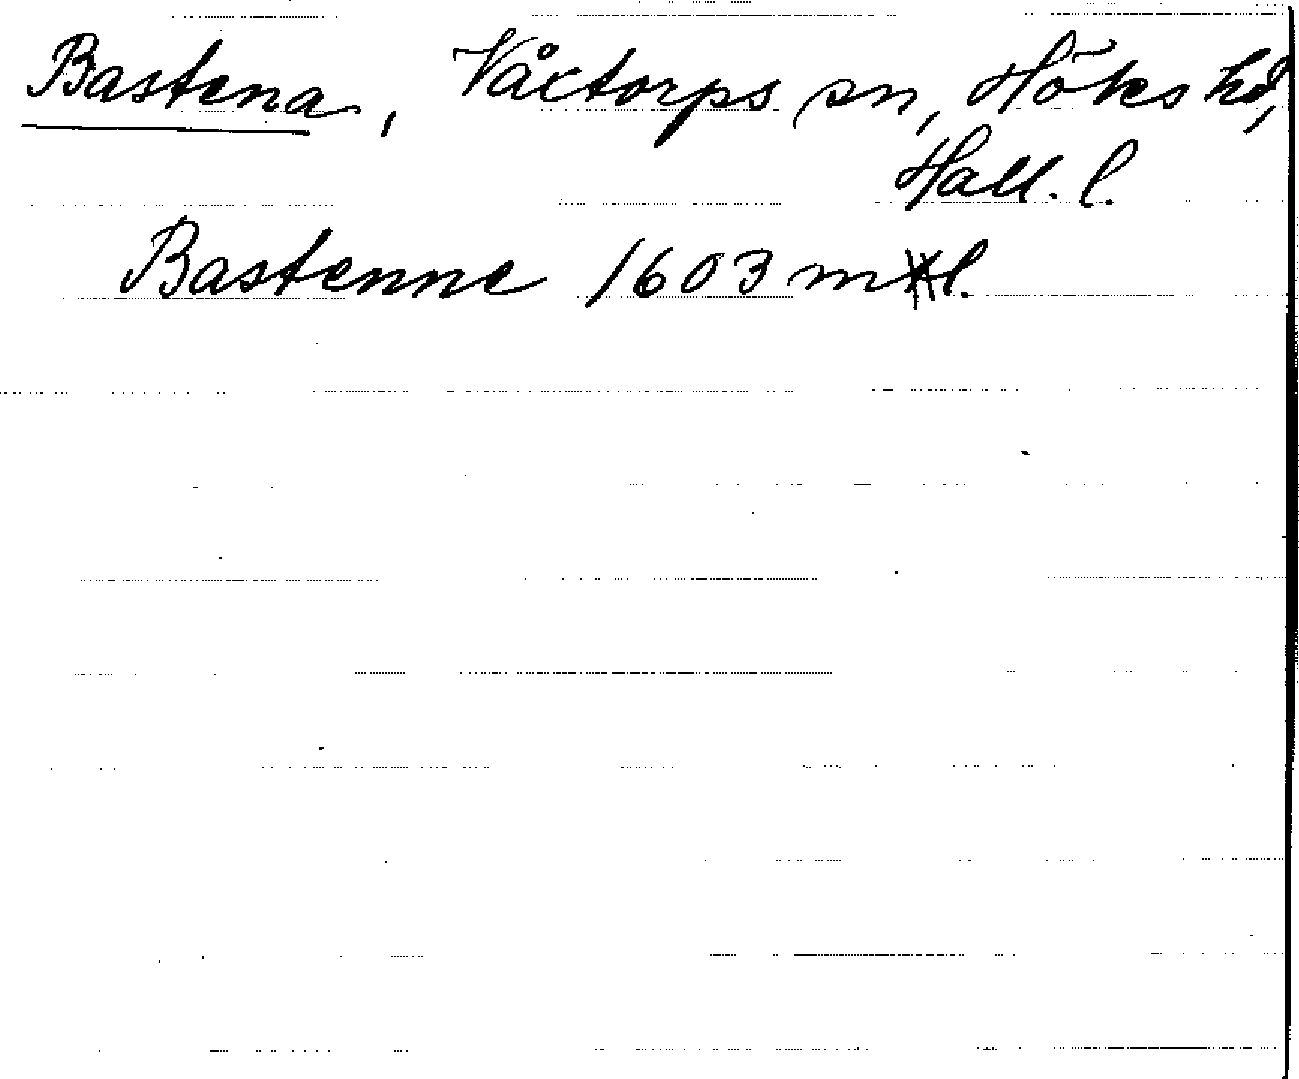 Bastena, Våxtorps sn, Höks hd,
Hall. l.
Bastenne 1603 ml.